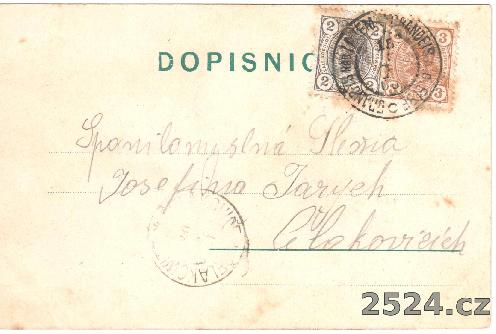 DOPISNIC
2 2 3 3
2 2 3 3
Spanilomyslná Slečna
Josefina Jarych
Čelakovicích
2524.cz